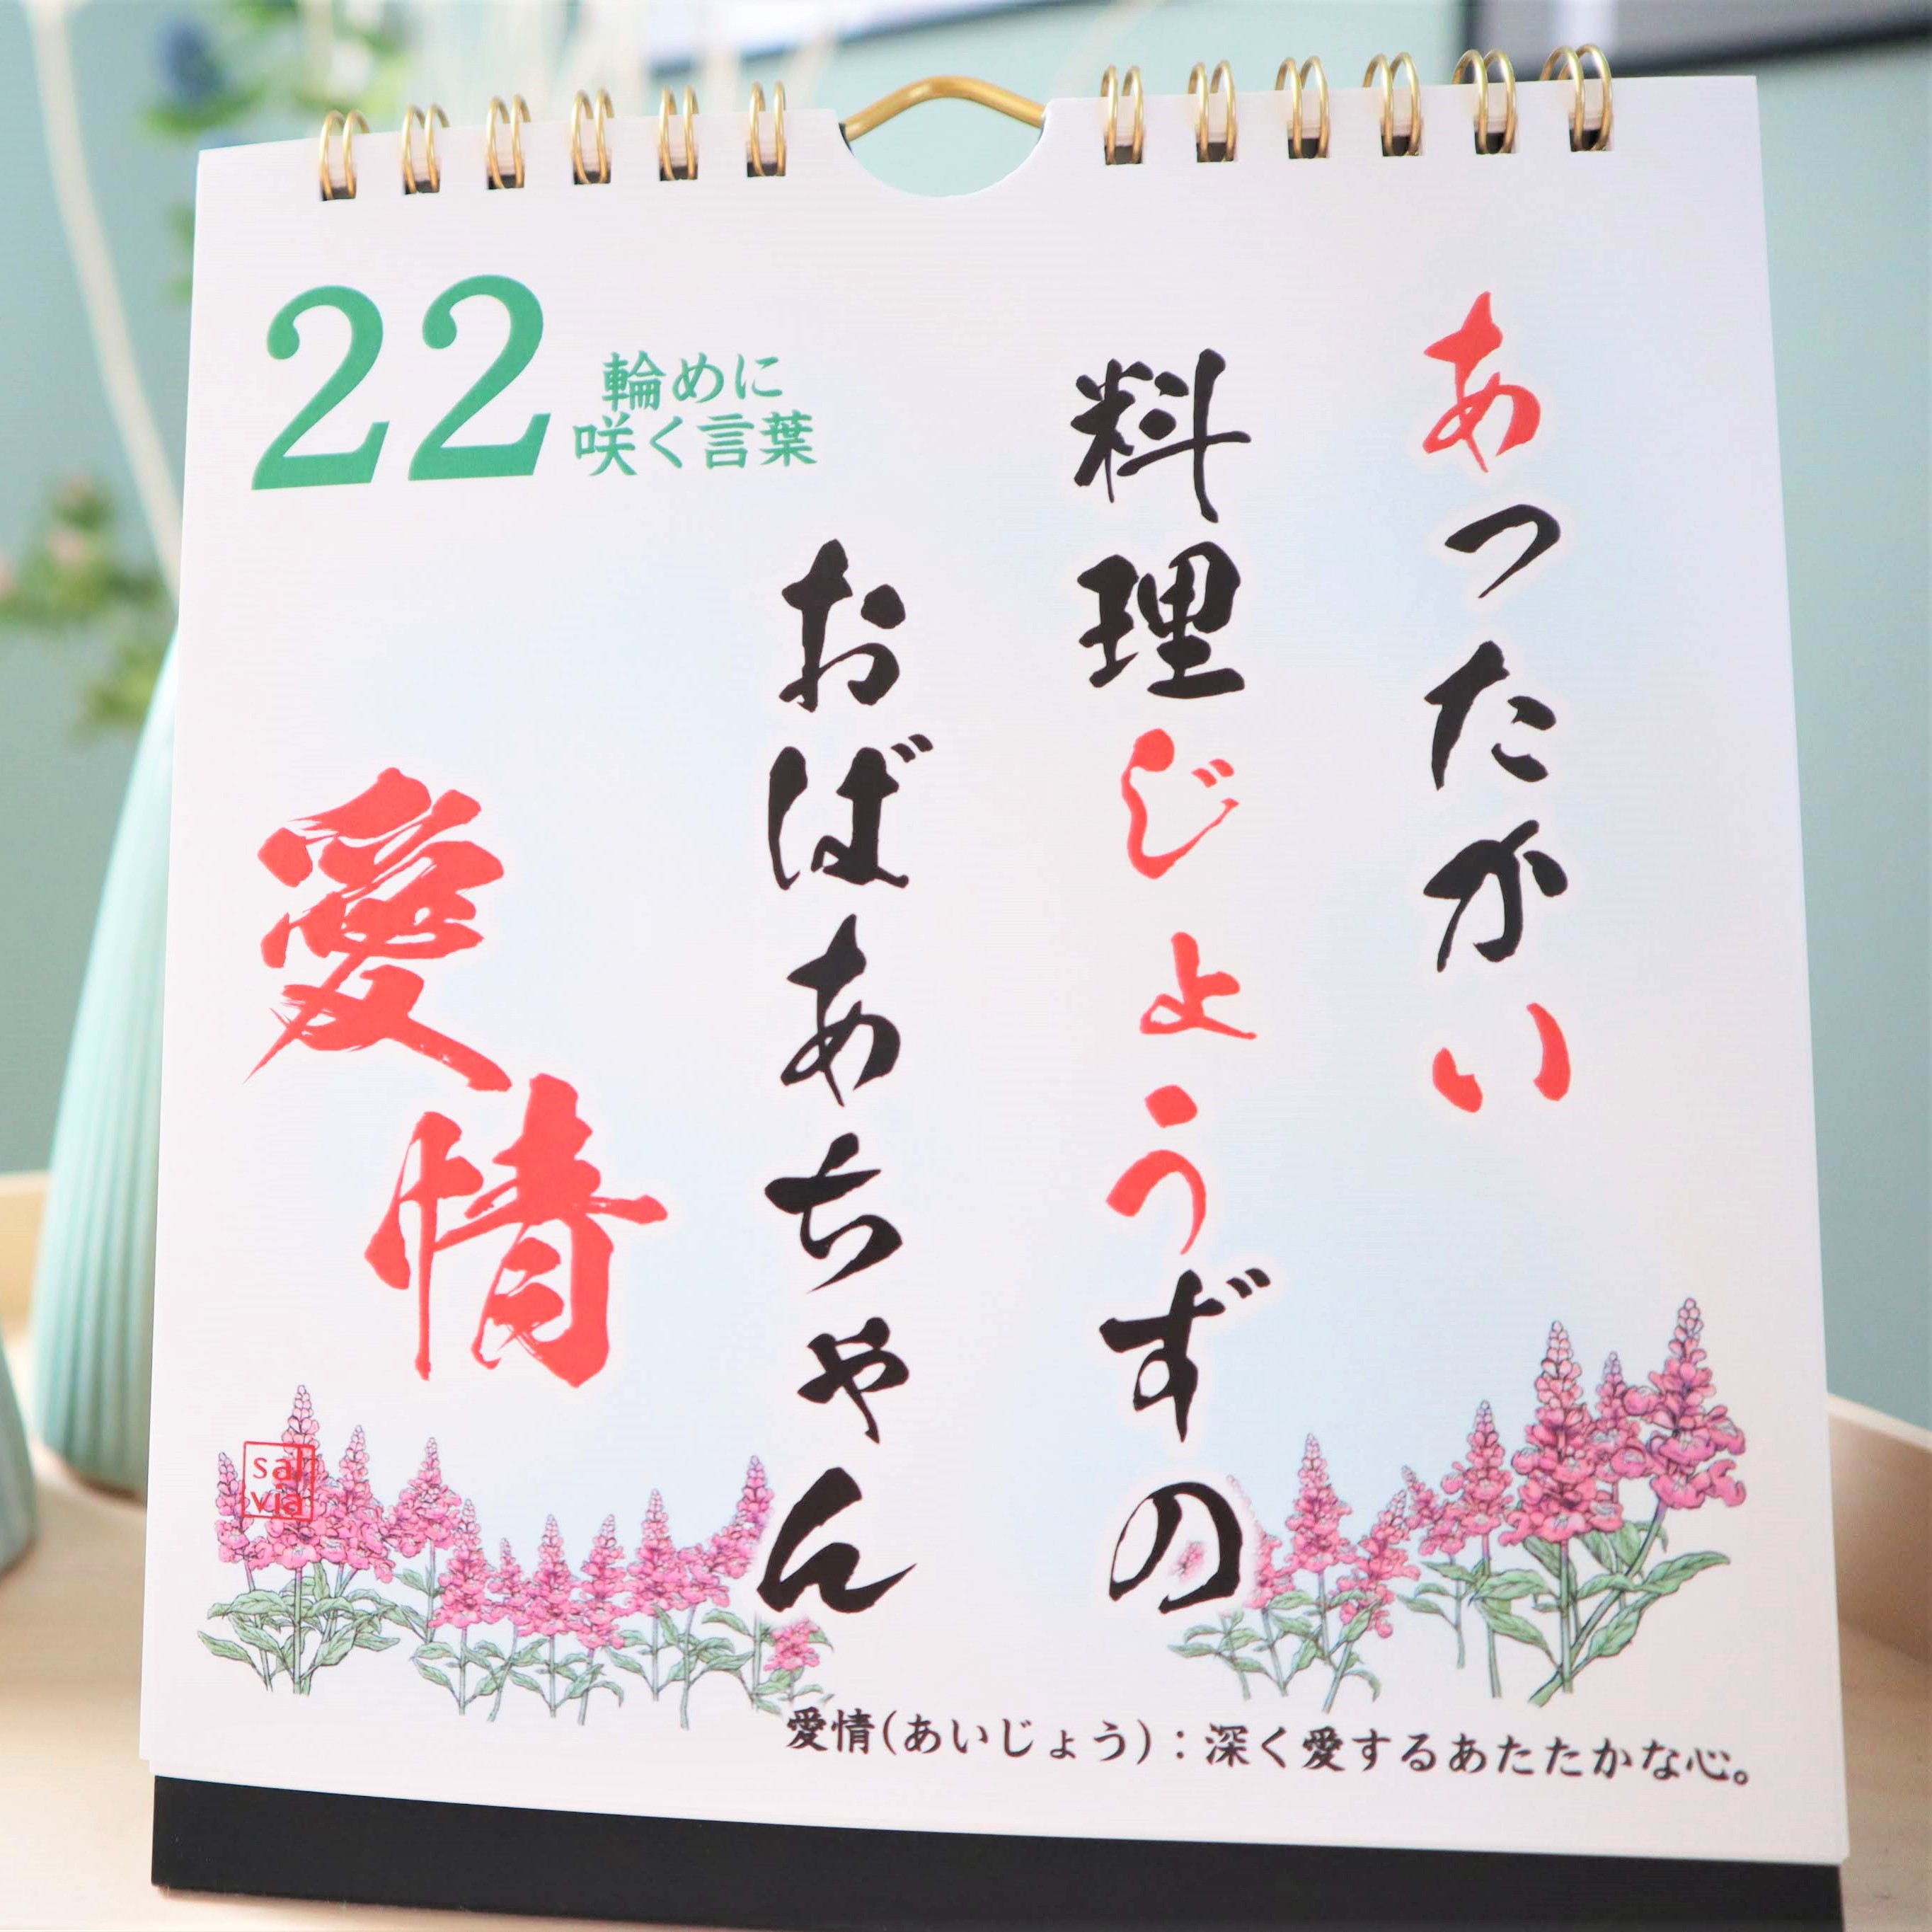 22
輪めに
咲く言葉
あったかい
料理じょうずの
おばあちゃん
愛情
sal
via
愛情(あいじょう):深く愛するあたたかな心。